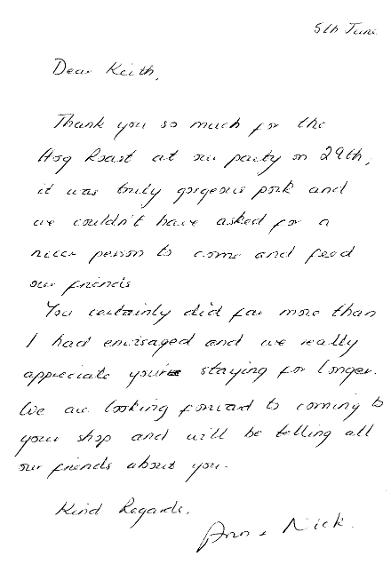 5th June
Dear Keith,
Thank you so much for the
Hog Roast at our party on 29th,
it was truly gorgeous pork and
we couldn't have asked for a
nicer person to come and feed
our friends
You certainly did far more than
I had envisaged and we really
appreciate your staying for longer.
We are looking forward to coming to
your shop and will be telling all
our friends about you.
Kind Regards.
Ann + Nick.